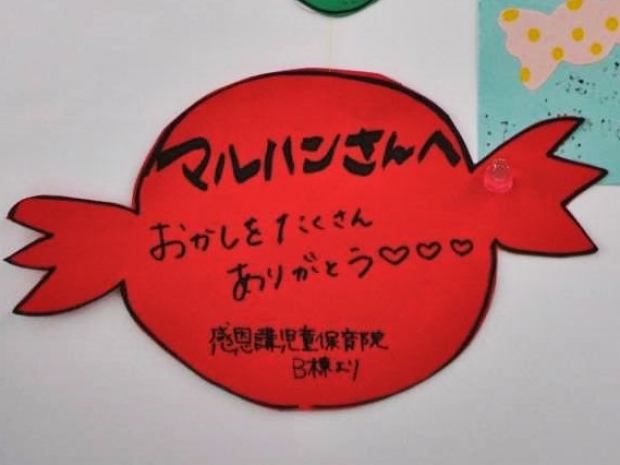 マルハンさんへ
おかしをたくさん
ありがとう♡♡♡
感恩講児童保育院
B棟より